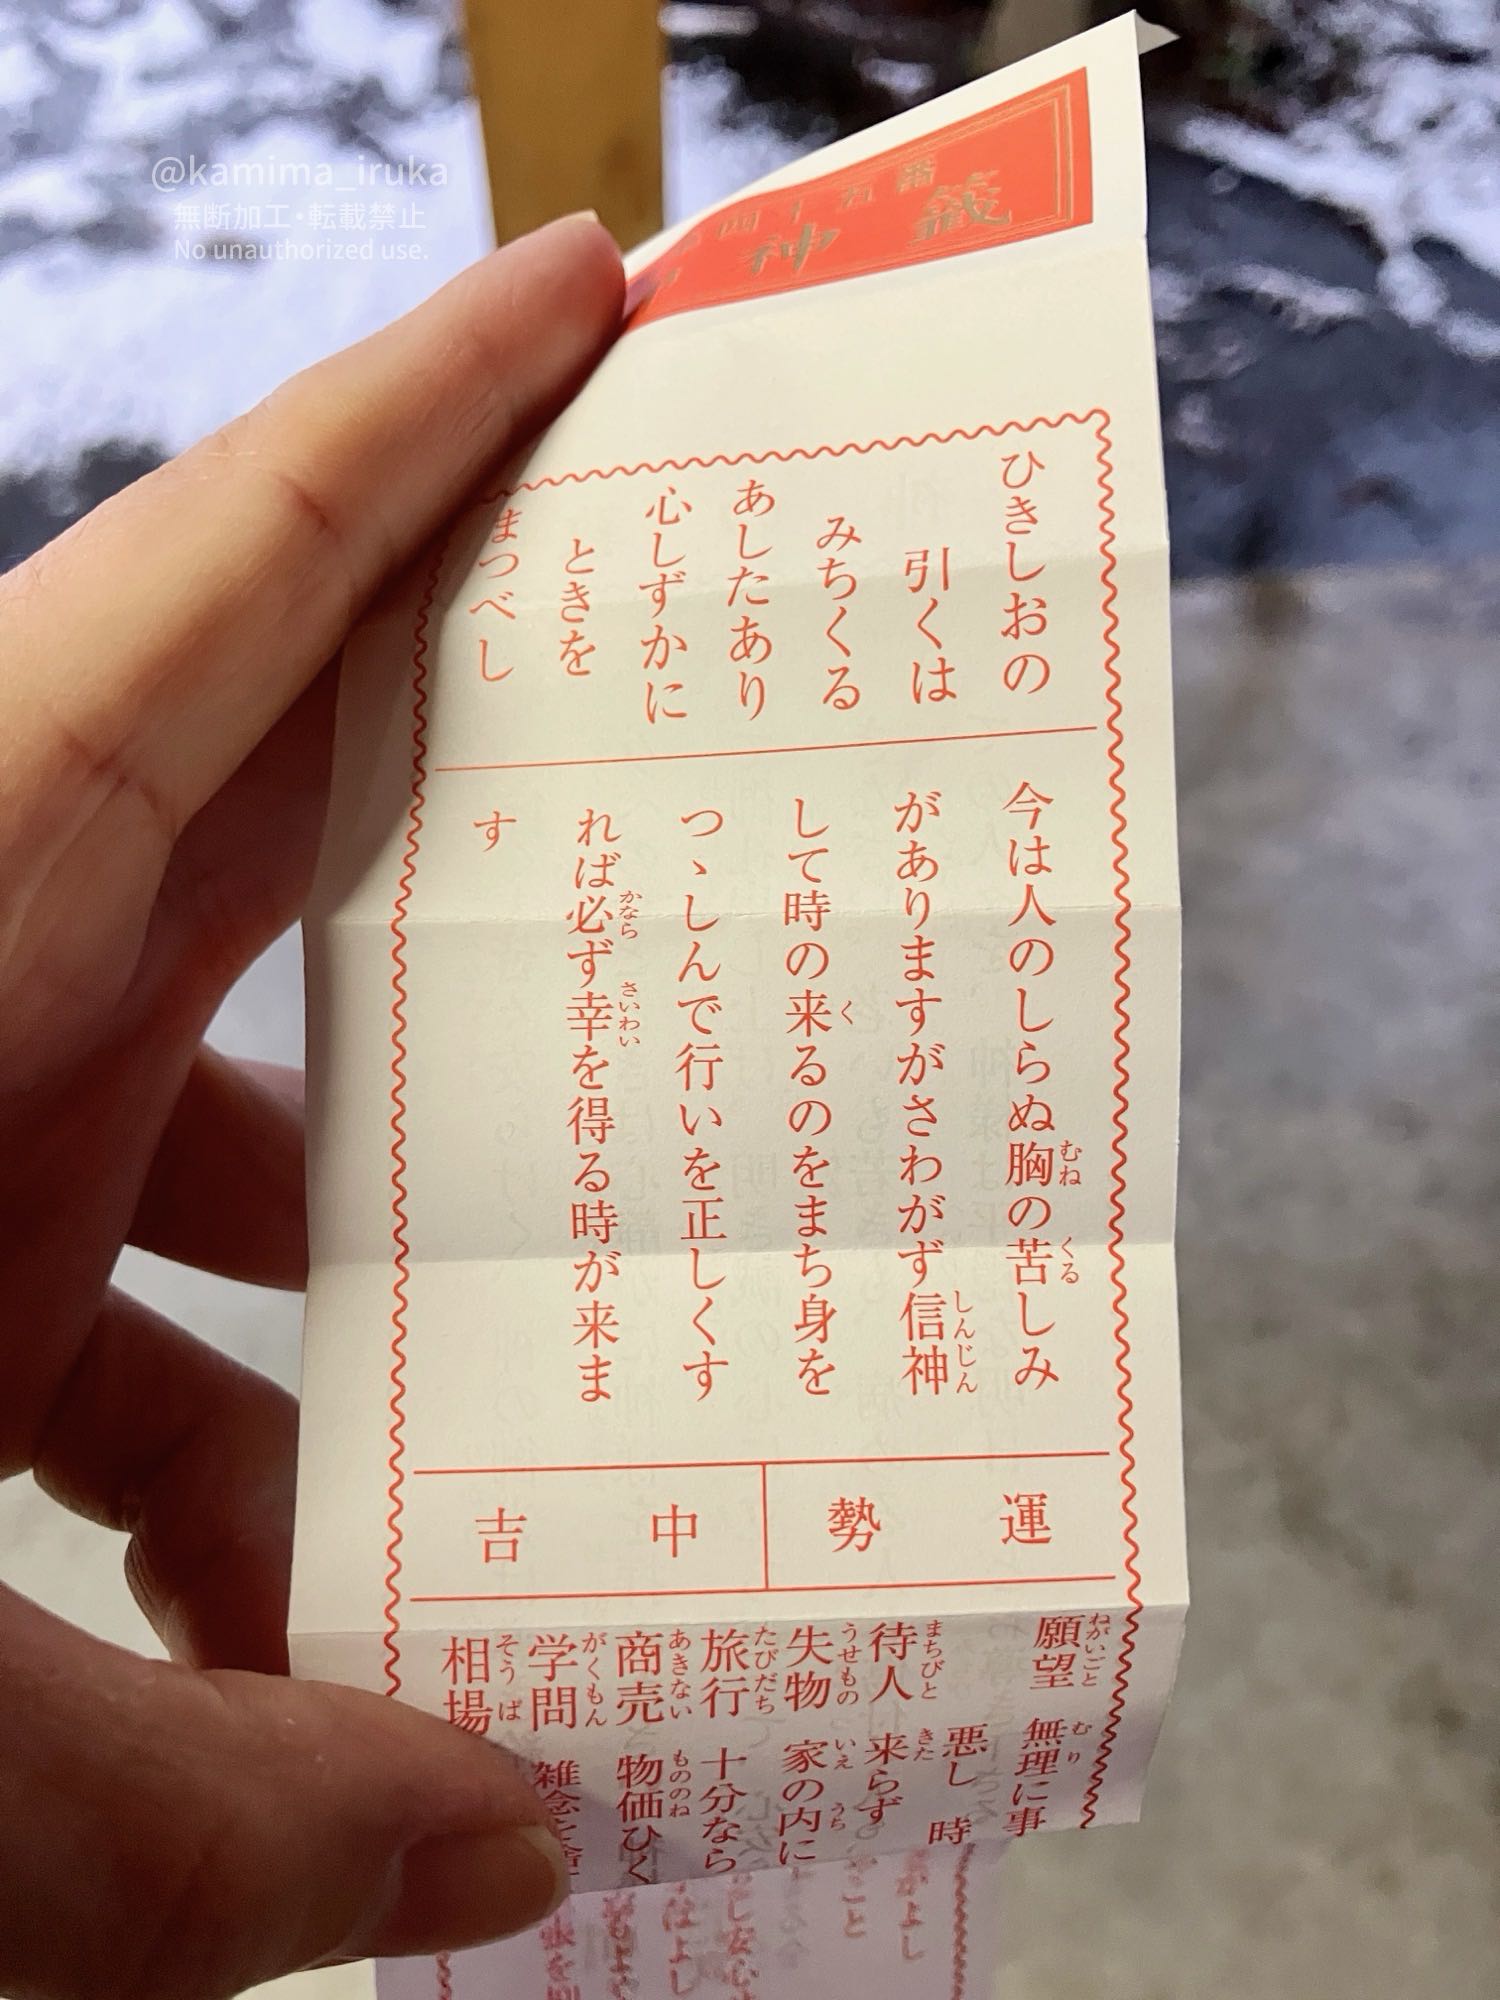 @kamima_iruka
無断加工・転載禁止
No unauthorized use.
四十五番
神籤
ひきしおの
引くは
みちくる
あしたあり
心しずかに
ときを
まつべし
今は人のしらぬ胸の苦しみ
がありますがさわがず信神
して時の来るのをまち身を
つゝしんで行いを正しくす
れば必ず幸を得る時が来ま
す
運勢
中吉
願望 無理に事
悪し 時
待人 来らず
失物 家の内に
旅行 十分なら
商売 物価ひく
学問 雑念を
相場